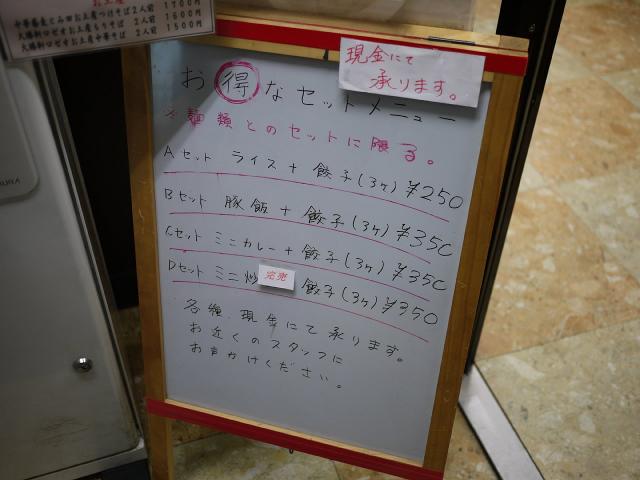 お土産
中華蕎麦とみ田お土産つけそば2人前 1700円
2人前 1600円
2人前 1500円
現金にて
承ります。
お得なセットメニュー
※麺類とのセットに限る。
Aセット ライス + 餃子(3ヶ) ¥250
Bセット 豚飯 + 餃子(3ヶ) ¥350
Cセット ミニカレー + 餃子(3ヶ) ¥350
Dセット ミニ炒 完売 餃子(3ヶ) ¥350
各種、現金にて承ります。
お近くのスタッフに
お声かけください。